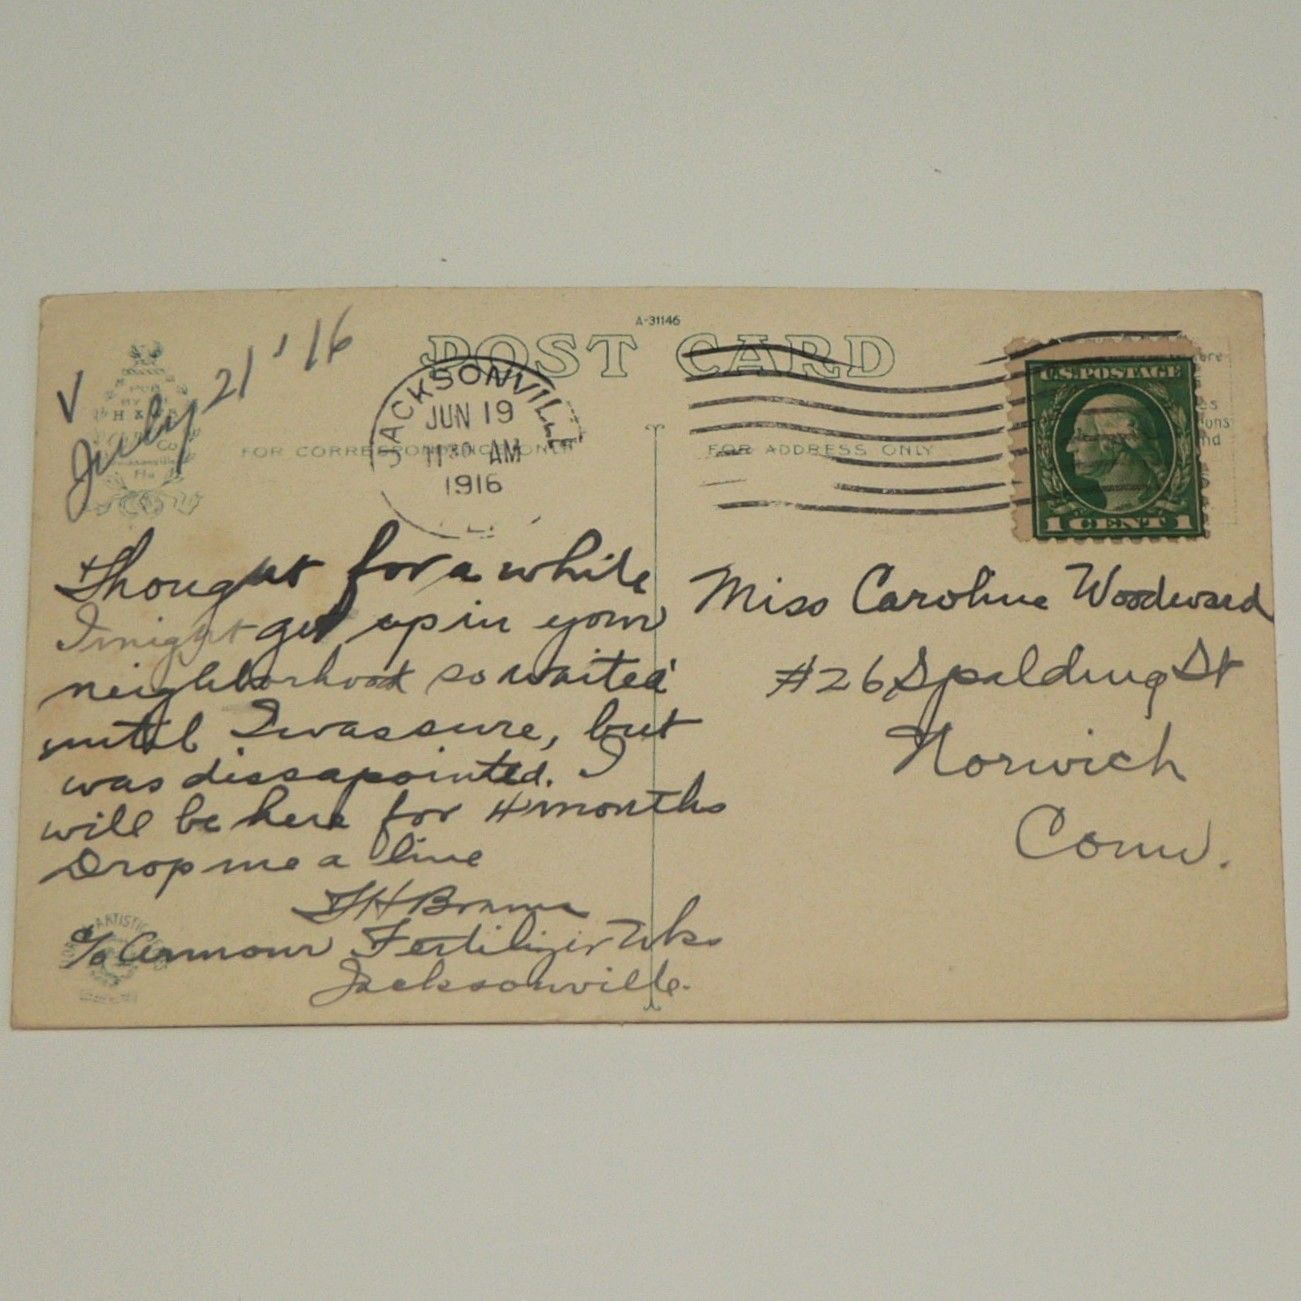 A-31146
POST CARD
V
July 21 '16
PUB
BY
H & W
Co
Jacksonville
Fla
JACKSONVILLE
JUN 19
11 30 AM
1916
FOR CORRESPONDENCE ONLY
FOR ADDRESS ONLY
U.S. POSTAGE
1 CENT 1
Thought for a while
I might get up in your
neighborhood so waited
until I was sure, but
was dissapointed. I
will be here for 4 months
Drop me a line
c/o Armour Fertilizer Wks
Jacksonville.
Miss Caroline Woodward
#26 Spalding St
Norwich
Conn.
ARTISTIC